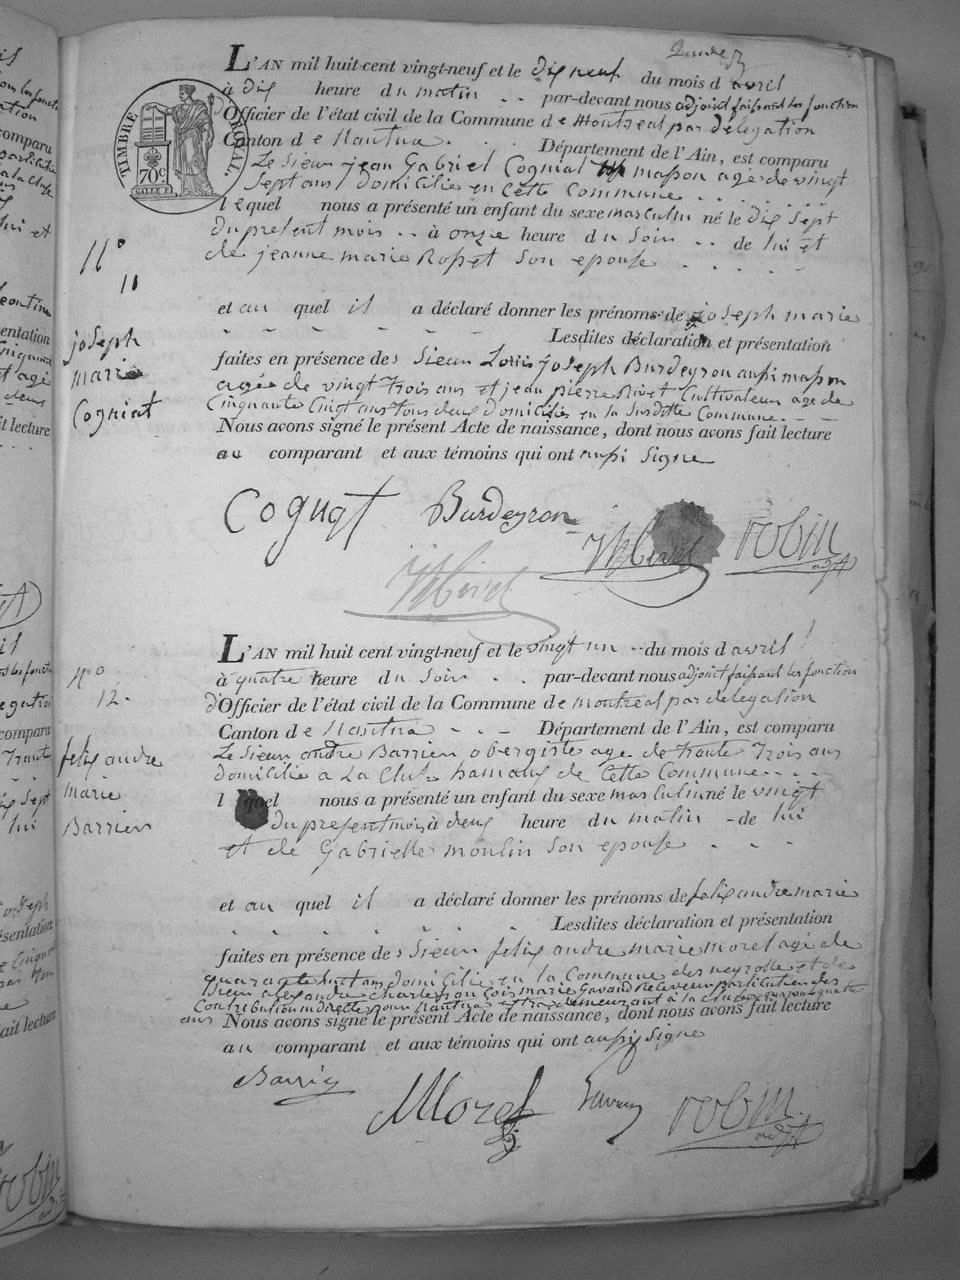 TIMBRE ROYAL.
70 c
L'AN mil huit-cent vingt-neuf et le dix neuf du mois d'avril
à dix heure du matin par-devant nous adjoint faisant les fonction
Officier de l'état civil de la Commune de Montreal par delegation
Canton de Nantua Département de l'Ain, est comparu
Le Sieur jean Gabriel Cogniat mason age de vingt
Sept ans Domicilié en Cette Commune
lequel nous a présenté un enfant du sexe masculin né le dix Sept
du present mois à onze heure du Soir de lui et
de jeanne marie Rosset Son epouse
11°
11
et au quel il a déclaré donner les prénoms de joseph marie
Lesdites déclaration et présentation
joseph
marie
Cogniat
faites en présence des Sieur Louis joseph Burdeyron aussi mason
agée de vingt trois ans et jean pierre Rivet Cultivateur age de
Cinquante Cinq ans tous deux Domiciliés en la Susditte Commune
Nous avons signé le présent Acte de naissance, dont nous avons fait lecture
au comparant et aux témoins qui ont aussi Signe
Cogniat Burdeyron Rivet robin adjt
L'AN mil huit cent vingt-neuf et le vingt un du mois d'avril
à quatre heure du Soir par-devant nous adjoint faisant les fonction
d'Officier de l'état civil de la Commune de Montreal par delegation
Canton de Nantua Département de l'Ain, est comparu
n°
12.
felix andre
marie
Barrier
Le Sieur andre Barrier obergiste age de trante Trois ans
domicilié a La Cluse hamaux de Cette Commune
lequel nous a présenté un enfant du sexe masculin né le vingt
du present mois à deux heure du matin de lui
et de Gabrielle moulin Son epouse
et au quel il a déclaré donner les prénoms de felix andre marie
Lesdites déclaration et présentation
faites en présence des Sieur felix andre marie morel agé de
quarante huit ans domicilié en la Commune des neyrolle et de
Sieur alexandre Charles françois marie Gavand Receveur particulier des
Contribution indirectes pour Nantua demeurant a la Cluse
ans Nous avons signé le présent Acte de naissance, dont nous avons fait lecture
au comparant et aux témoins qui ont aussi Signe
Barrier Morel Gavand robin adjt